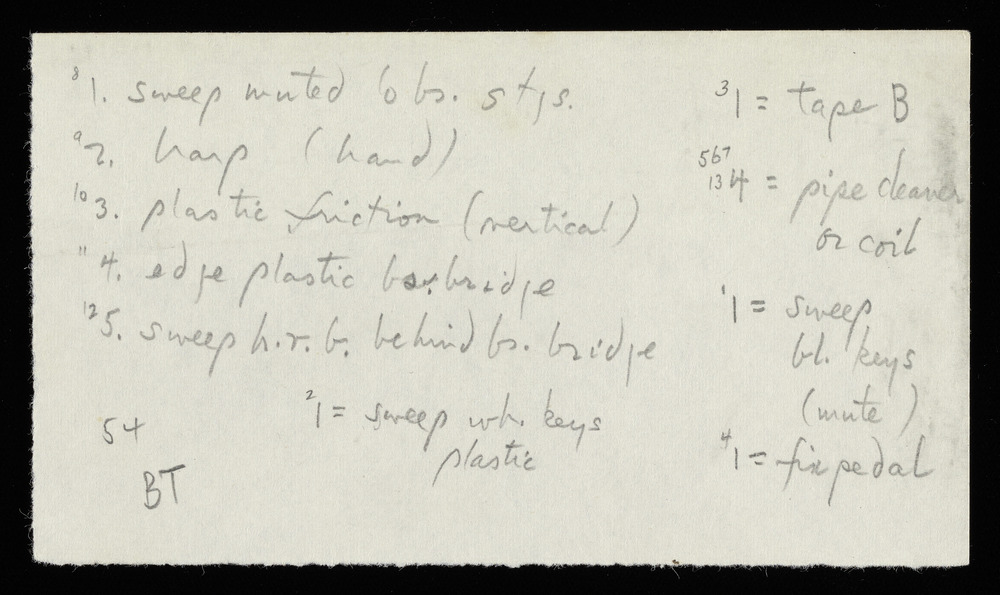 8 1. sweep muted lo bs. stgs.
9 2. harp (hand)
10 3. plastic friction (vertical)
11 4. edge plastic bs. bridge
12 5. sweep h.r.b. behind bs. bridge
2 1 = sweep wh. keys
plastic
54
BT
3 1 = tape B
5 6 7
13 4 = pipe cleaner
or coil
1 1 = sweep
bl. keys
(mute)
4 1 = fix pedal